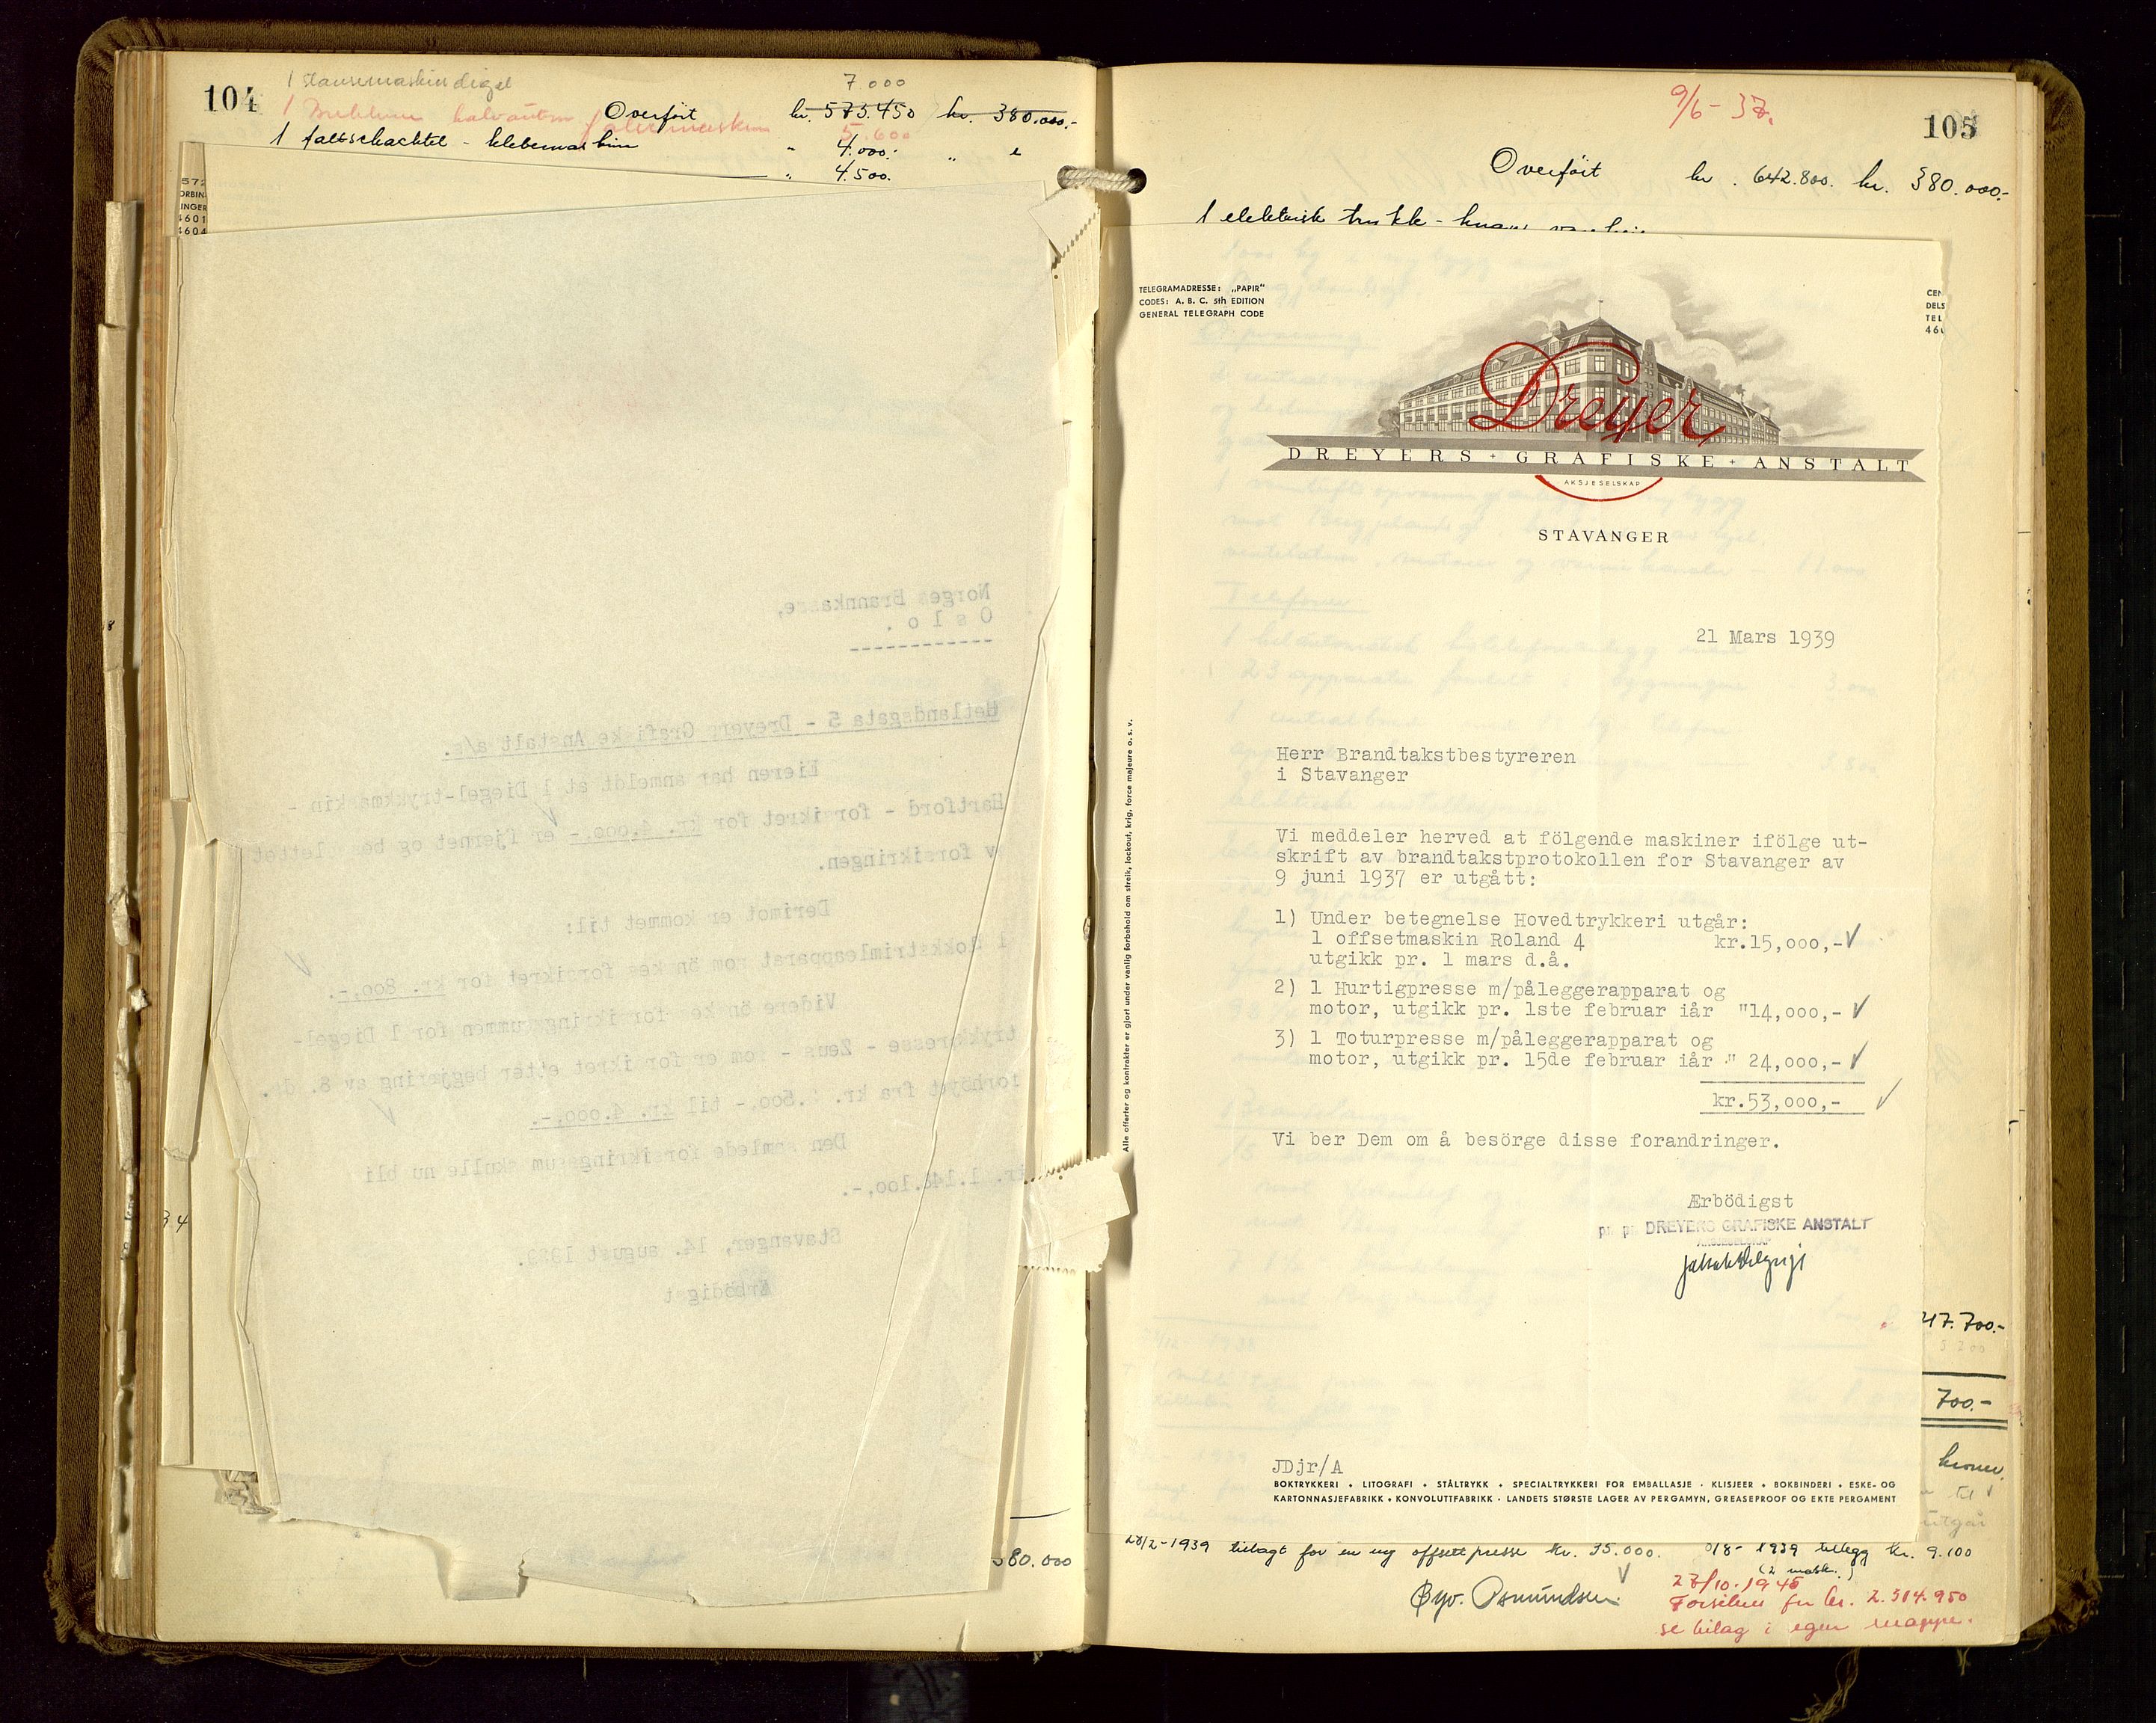 104
1 stansemaskin digel
7.000
Overført kr. 573.450 kr. 380.000.-
5.600
1 faltschachtel - klebemaskin " 4.000.- "
" 4.500.
572
ORBIN
INGER
4601
4604
Norges Brannkasse,
Oslo.
Hetlandsgata 5 - Dreyers Grafiske Anstalt a/s.
Eieren har anmeldt at 1 Diegel-trykkmaskin -
Hartford - forsikret for kr. 4.000,- er fjernet og bes slettet
av forsikringen.
Derimot er kommet til:
1 Bokkstrimleapparat som ønskes forsikret for kr. 800,-.
Videre ønskes forsikringssummen for 1 Diegel-
trykkpresse - Zeus - som er forsikret etter begjæring av 8. ds.
forhøyet fra kr. 3.500,- til kr. 4.000,-.
Den samlede forsikringssum skulle nu bli
kr. 1.148.100,-.
Stavanger, 14. august 1939.
Ærbödigst
380.000
9/6- 37.
105
Overført kr. 642.800. kr. 380.000.-
1 elektrisk trykk - knapp
TELEGRAMADRESSE: „PAPIR“
CODES: A. B. C. 5th EDITION
GENERAL TELEGRAPH CODE
CEN
DELS
TEL
460
Dreyer
DREYERS + GRAFISKE + ANSTALT
AKSJESELSKAP
STAVANGER
21 Mars 1939
Herr Brandtakstbestyreren
i Stavanger
Vi meddeler herved at fölgende maskiner ifölge ut-
skrift av brandtakstprotokollen for Stavanger av
9 juni 1937 er utgått:
1) Under betegnelse Hovedtrykkeri utgår:
1 offsetmaskin Roland 4 kr.15,000,- ✓
utgikk pr. 1 mars d.å.
2) 1 Hurtigpresse m/påleggerapparat og
motor, utgikk pr. 1ste februar iår "14,000,- ✓
3) 1 Toturpresse m/påleggerapparat og
motor, utgikk pr. 15de februar iår " 24,000,- ✓
kr.53,000,- ✓
Vi ber Dem om å besörge disse forandringer.
Ærbödigst
pr. pr. DREYERS GRAFISKE ANSTALT
AKSJESELSKAP
Alle offerter og kontrakter er gjort under vanlig forbehold om streik, lockout, krig, force majeure o. s. v.
JDjr/A
BOKTRYKKERI • LITOGRAFI • STÅLTRYKK • SPECIALTRYKKERI FOR EMBALLASJE • KLISJEER • BOKBINDERI • ESKE- OG
KARTONNASJEFABRIKK • KONVOLUTTFABRIKK • LANDETS STØRSTE LAGER AV PERGAMYN, GREASEPROOF OG EKTE PERGAMENT
47.700.-
5 200
700.-
kroner.
til
utgår
28/2-1939 tillagt for en ny offsettpresse kr. 35.000. 8- 1939 tillegg kr. 9.100
(2 mask.)
Øyv. Osmundsen
27/10.1945
Forsikr. for kr. 2.314.950
se bilag i egen mappe.